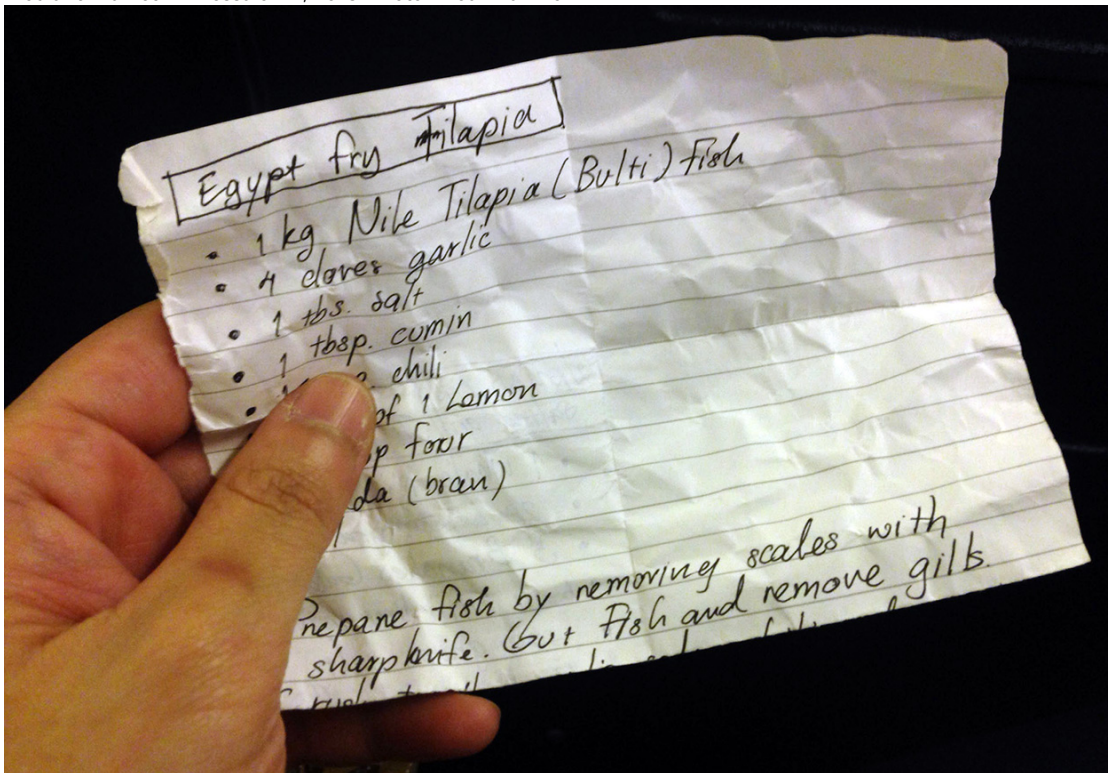 Egypt fry Tilapia
• 1 kg Nile Tilapia (Bulti) fish
• 4 cloves garlic
• 1 tbs. salt
• 1 tbsp. cumin
• chili
of 1 Lemon
four
(bran)
Prepare fish by removing scales with
sharp knife. Gut Fish and remove gills.